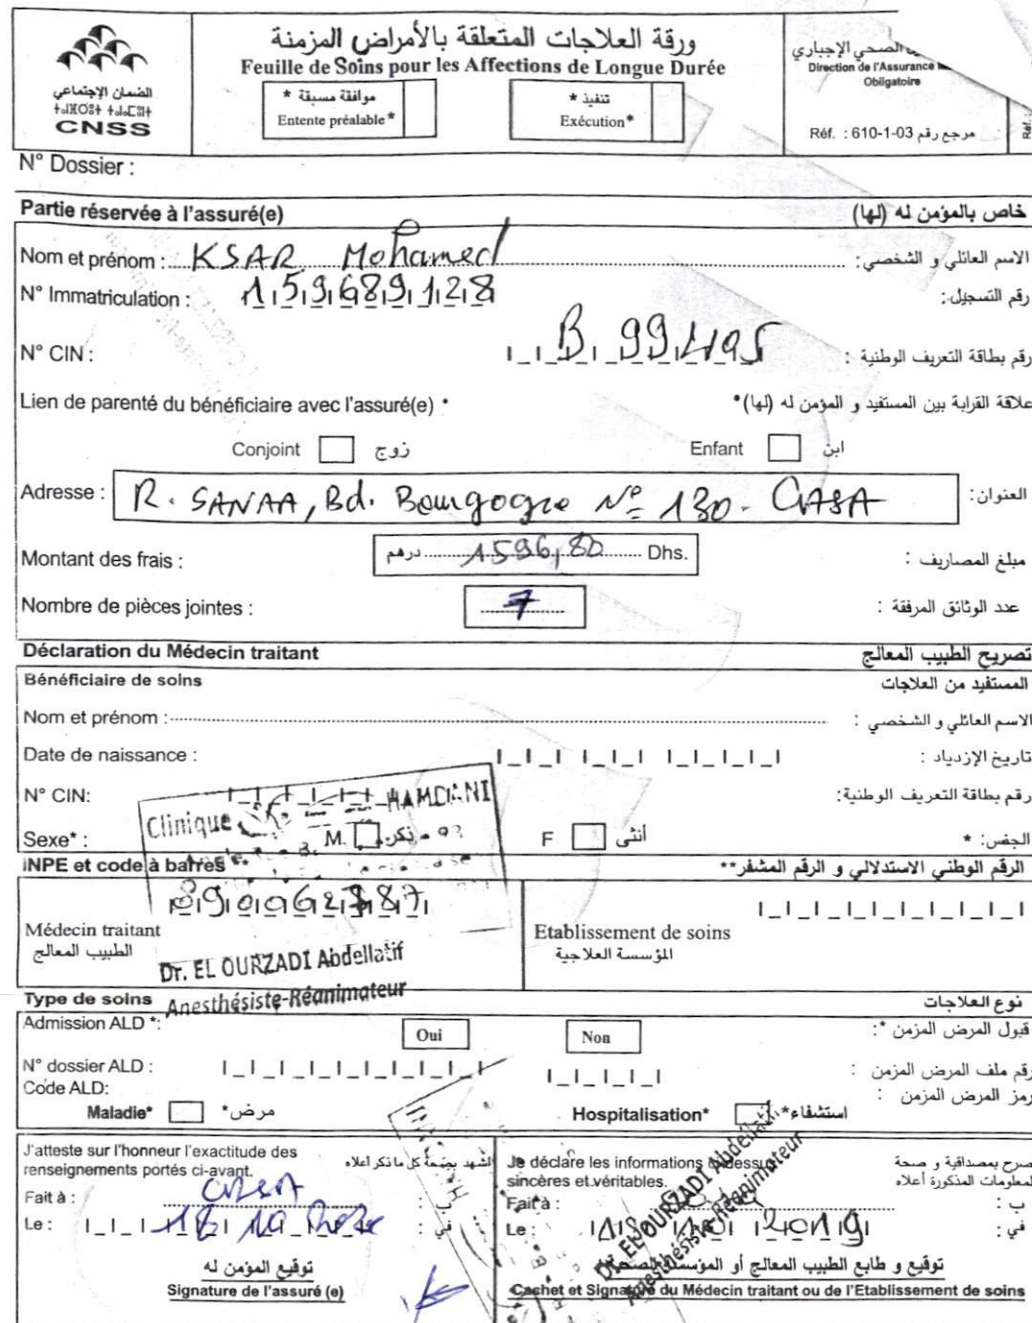 ورقة العلاجات المتعلقة بالأمراض المزمنة
Feuille de Soins pour les Affections de Longue Durée
الضمان الإجتماعي
CNSS
موافقة مسبقة *
Entente préalable *
تنفيذ *
Exécution*
الصحي الإجباري
Direction de l'Assurance
Obligatoire
Réf. : 610-1-03 مرجع رقم
Réf.
N° Dossier :
Partie réservée à l'assuré(e) خاص بالمؤمن له (لها)
Nom et prénom : KSAR Mohamed الاسم العائلي و الشخصي :
N° Immatriculation : 159689128 رقم التسجيل:
N° CIN : B 99495 رقم بطاقة التعريف الوطنية :
Lien de parenté du bénéficiaire avec l'assuré(e) * علاقة القرابة بين المستفيد و المؤمن له (لها)*
Conjoint زوج Enfant ابن
Adresse : R. SANAA, Bd. Bourgogne N° 130 - CASA العنوان:
Montant des frais : درهم 1596,80 Dhs. مبلغ المصاريف :
Nombre de pièces jointes : 7 عدد الوثائق المرفقة :
Déclaration du Médecin traitant تصريح الطبيب المعالج
Bénéficiaire de soins المستفيد من العلاجات
Nom et prénom : الاسم العائلي و الشخصي :
Date de naissance : تاريخ الإزدياد :
N° CIN: رقم بطاقة التعريف الوطنية:
Clinique HAMDANI
Sexe* : M. ذكر F أنثى الجنس: *
INPE et code à barres الرقم الوطني الاستدلالي و الرقم المشفر**
Médecin traitant
الطبيب المعالج
Etablissement de soins
المؤسسة العلاجية
Dr. EL OURZADI Abdellatif
Anesthésiste-Réanimateur
Type de soins نوع العلاجات
Admission ALD *: Oui Non قبول المرض المزمن *:
N° dossier ALD : رقم ملف المرض المزمن :
Code ALD: رمز المرض المزمن :
Maladie* مرض* Hospitalisation* استشفاء*
J'atteste sur l'honneur l'exactitude des
renseignements portés ci-avant.
أشهد بصحة كل ما ذكر أعلاه
Fait à : CASA ب :
Le : 18 10 في :
توقيع المؤمن له
Signature de l'assuré (e)
Je déclare les informations ci-dessus
sincères et véritables.
أصرح بمصداقية و صحة
المعلومات المذكورة أعلاه
Fait à : ب :
Le : 2019 في :
Dr. EL OURZADI Abdellatif
Anesthésiste Réanimateur
توقيع و طابع الطبيب المعالج أو المؤسسة الصحية
Cachet et Signature du Médecin traitant ou de l'Etablissement de soins